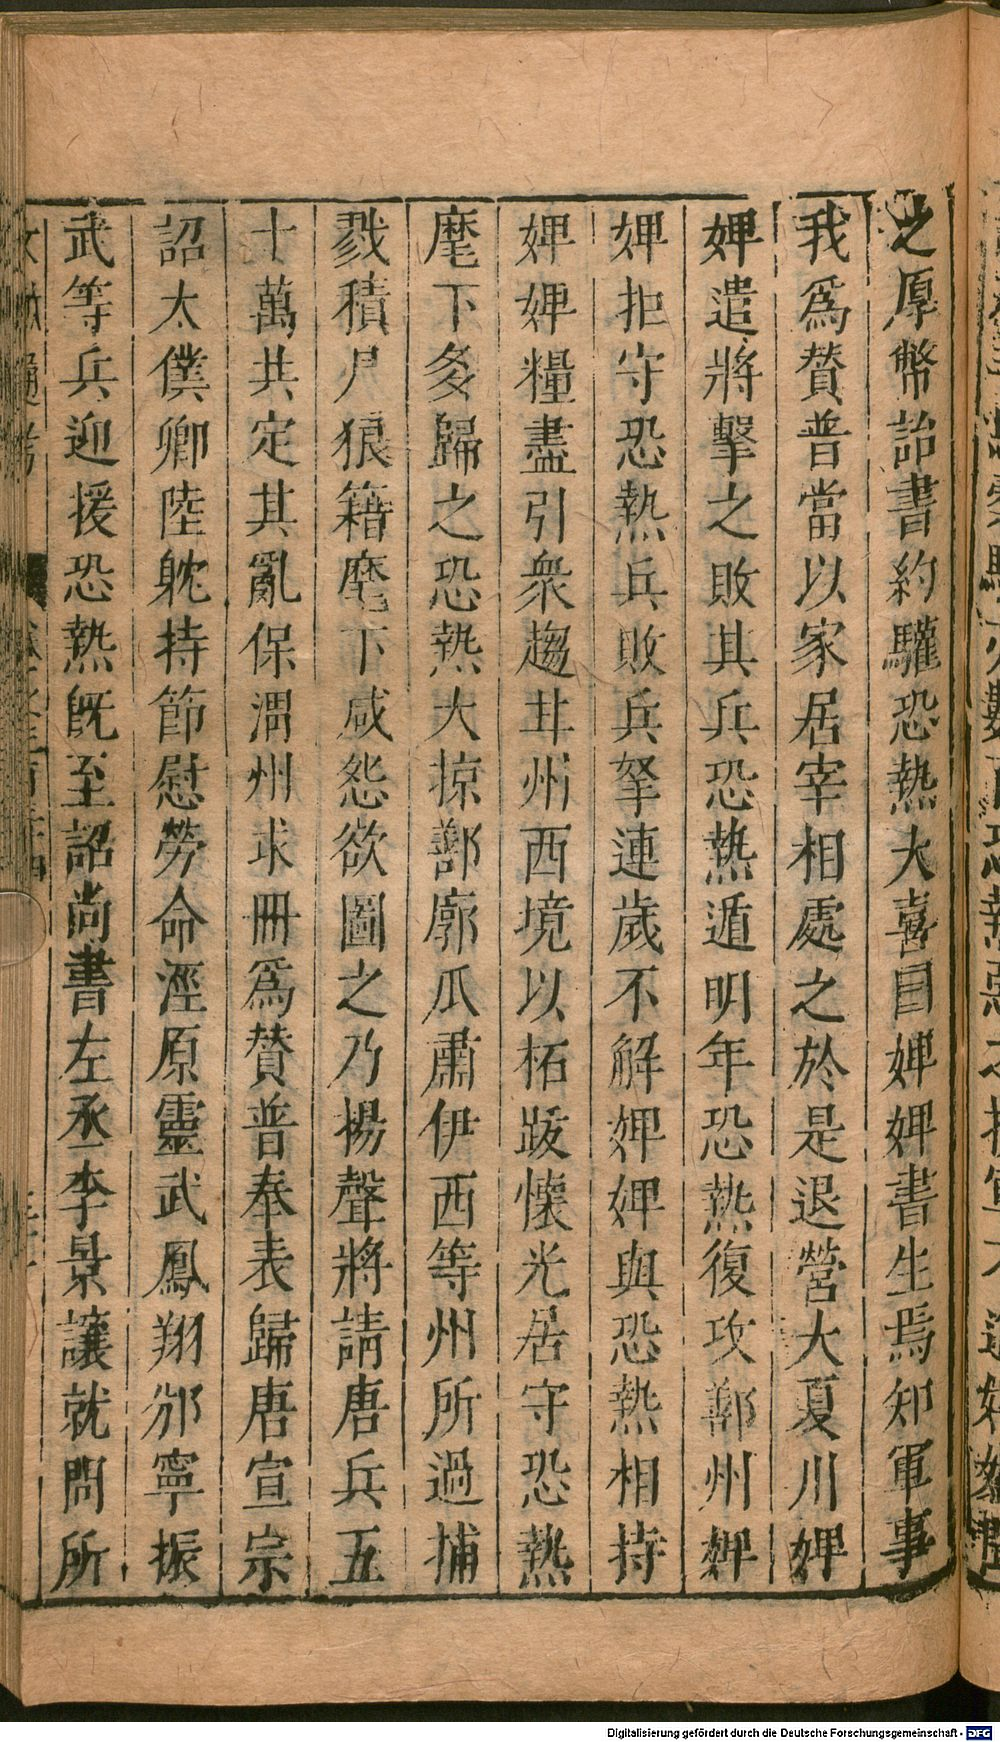 之厚幣詒書約驩恐熱大喜曰婢婢書生焉知軍事
我爲贊普當以家居宰相處之於是退營大夏川婢
婢遣將擊之敗其兵恐熱遁明年恐熱復攻鄯州婢
婢拒守恐熱兵敗兵拏連歲不解婢婢與恐熱相持
婢婢糧盡引衆趨甘州西境以柘跋懷光居守恐熱
麾下多歸之恐熱大掠鄯廓瓜肅伊西等州所過捕
戮積尸狼籍麾下咸怨欲圖之乃揚聲將請唐兵五
十萬共定其亂保渭州求冊爲贊普奉表歸唐宣宗
詔太僕卿陸躭持節慰勞命涇原靈武鳳翔邠寧振
武等兵迎援恐熱既至詔尚書左丞李景讓就問所
Digitalisierung gefördert durch die Deutsche Forschungsgemeinschaft - DFG